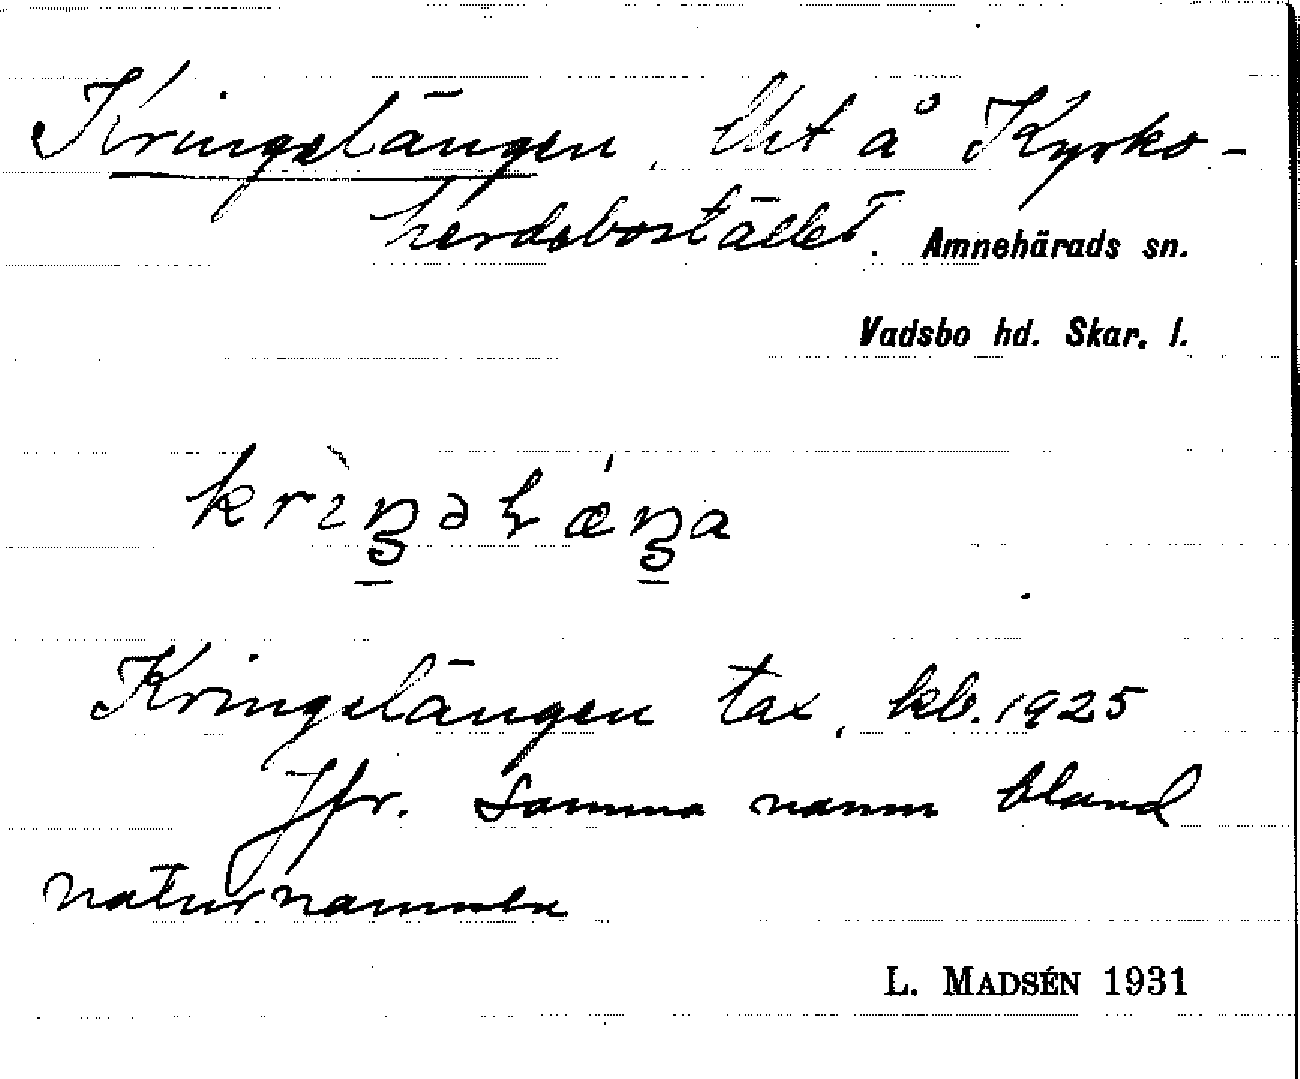 Kringelängen, lht å Kyrko-
herdebostället. Amnehärads sn.
Vadsbo hd. Skar. l.
krìŋəɫǽŋa
Kringelängen tax, kb. 1925
Jfr. samma namn bland
naturnamnen
L. MADSÉN 1931